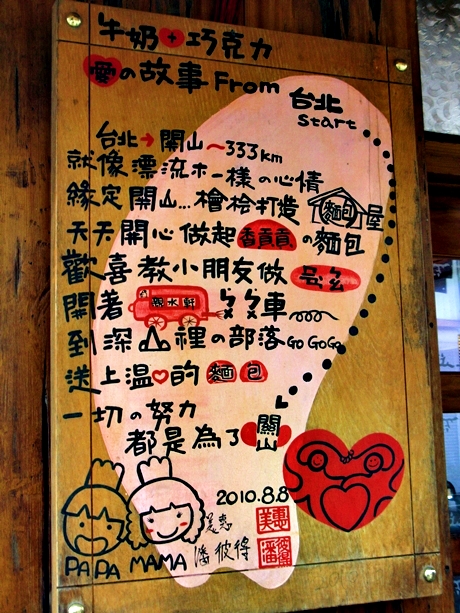 牛奶+巧克力
愛の故事 From 台北
Start
台北→關山～333km
就像漂流木一樣の心情
緣定關山...檜桧打造麵包屋
天天開心做起香貢貢の麵包
歡喜教小朋友做
開著 ㄅㄨㄅㄨ車
到深山裡の部落GO GOGO
送上溫♡的麵包
一切の努力
都是為了關山
2010.8.8
美惠
潘彼得
PAPA MAMA